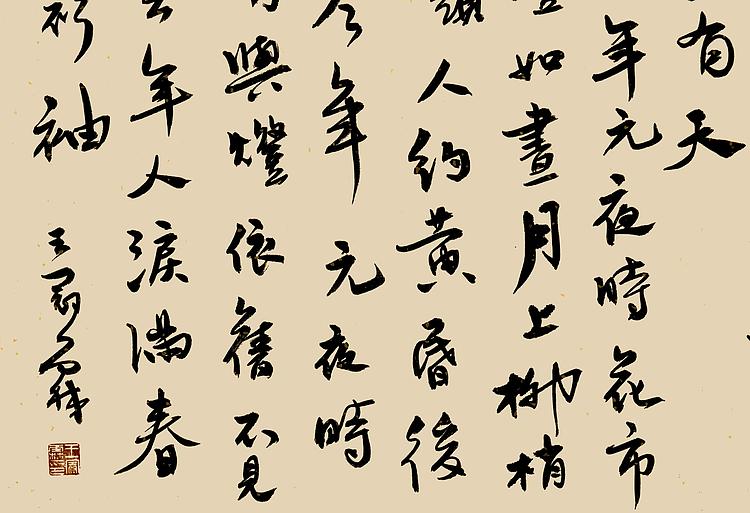 有天
年元夜時花市
燈如晝月上柳梢
頭人約黃昏後
今年元夜時
月與燈依舊不見
去年人淚滿春
衫袖
王